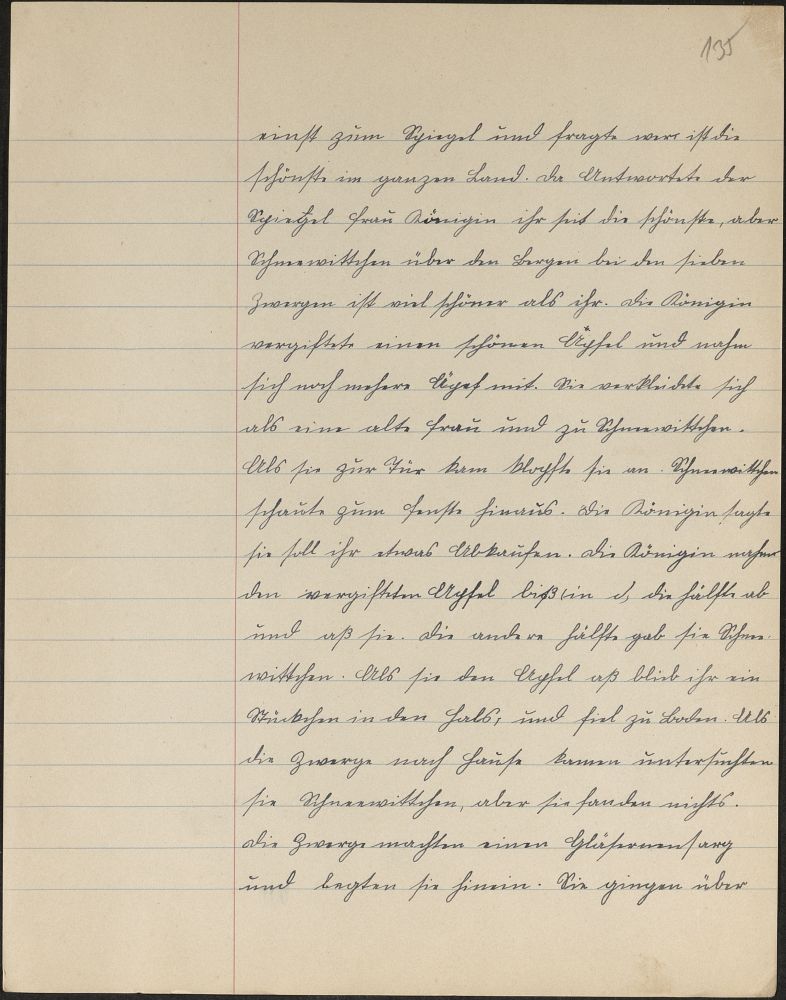 135
einst zum Spiegel und fragte wer ist die
schönste im ganzen Land. Da Antwortete der
Spiegel Frau Königin ihr seit die schönste, aber
Schneewittchen über den Bergen bei den sieben
Zwergen ist viel schöner als ihr. Die Königin
vergiftete einen schönen Äpfel und nahm
sich noch mehere Äpef mit. Sie verkleidete sich
als eine alte Frau und zu Schneewittchen.
Als sie zur Tür kam klopfte sie an. Schneewittchen
schaute zum Fenste hinaus. Die Königin sagte
sie soll ihr etwas Abkaufen. Die Königin nahm
den vergifteten Apfel biß in die hälfte ab
und aß sie. Die andere hälfte gab sie Schnee-
wittchen. Als sie den Apfel aß blieb ihr ein
Stückchen in den Hals, und fiel zu Boden. Als
die Zwerge nach Hause kamen untersuchten
sie Schneewittchen, aber sie fanden nichts.
Die Zwerge machten einen Gläsernensarg
und legten sie hinein. Sie gingen über